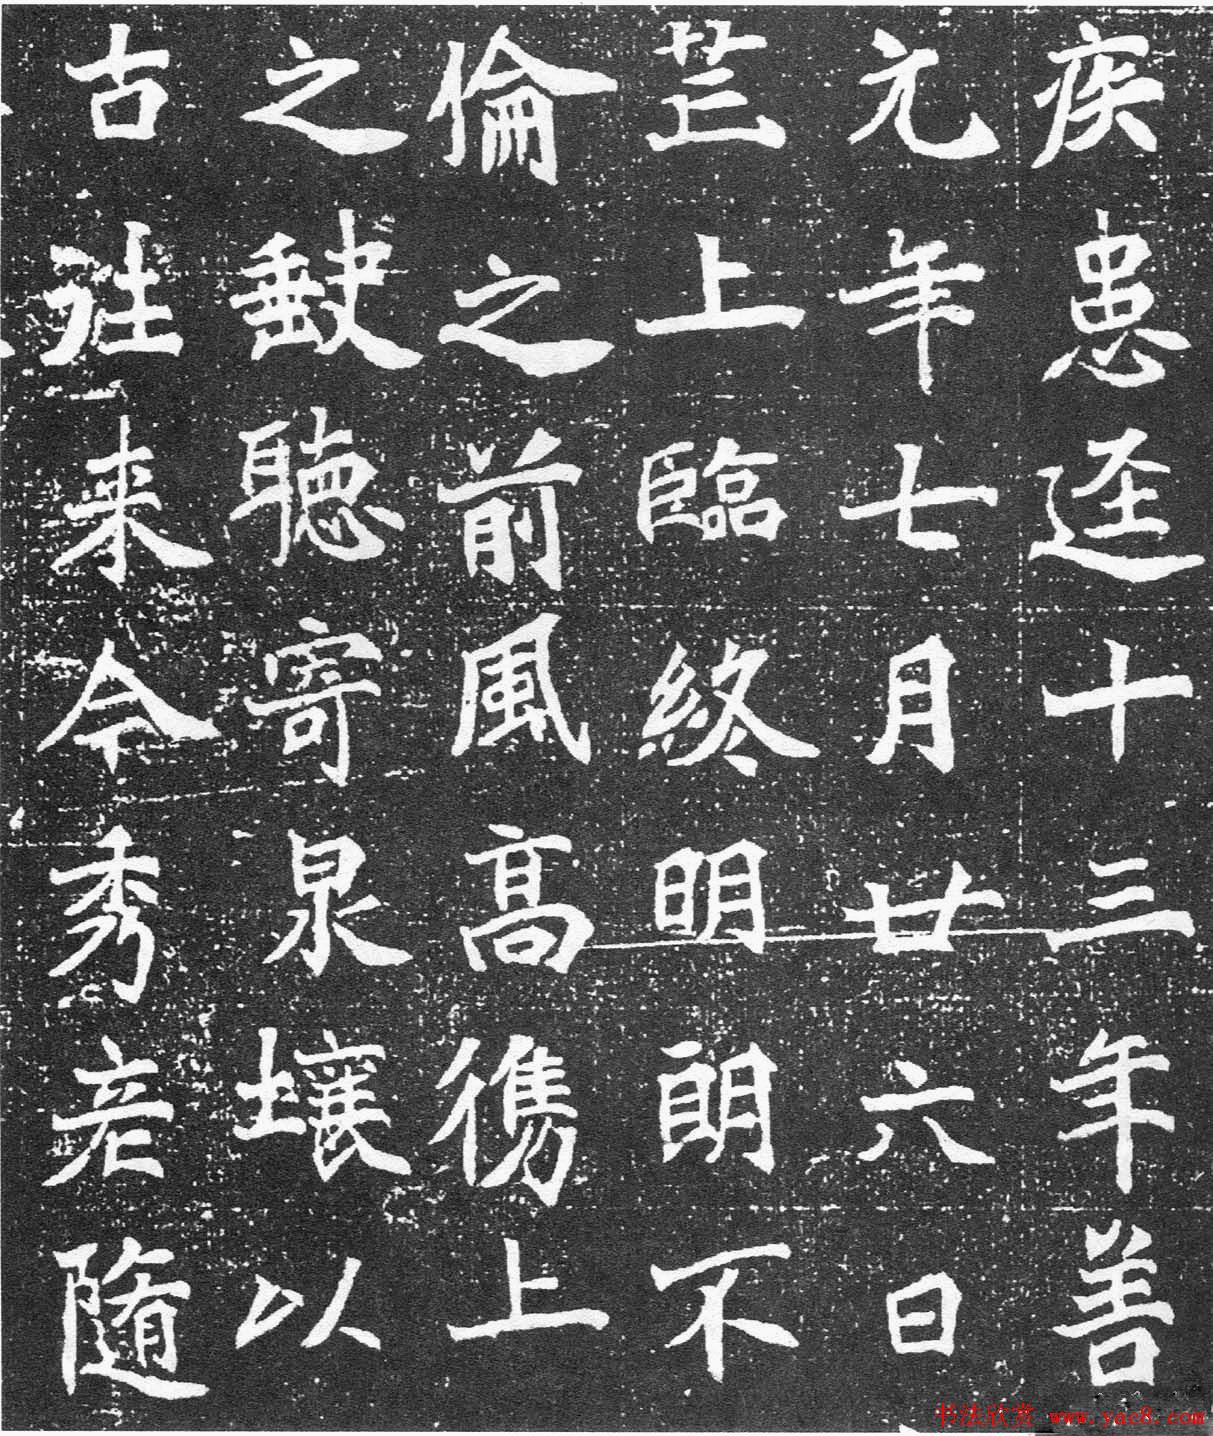 疾患迳十三年善
元年七月廿六日
芒上臨終明朗不
倫之前風高儁上
之缺聽寄泉壤以
古往来今秀彦隨
书法欣赏 www.yac8.com